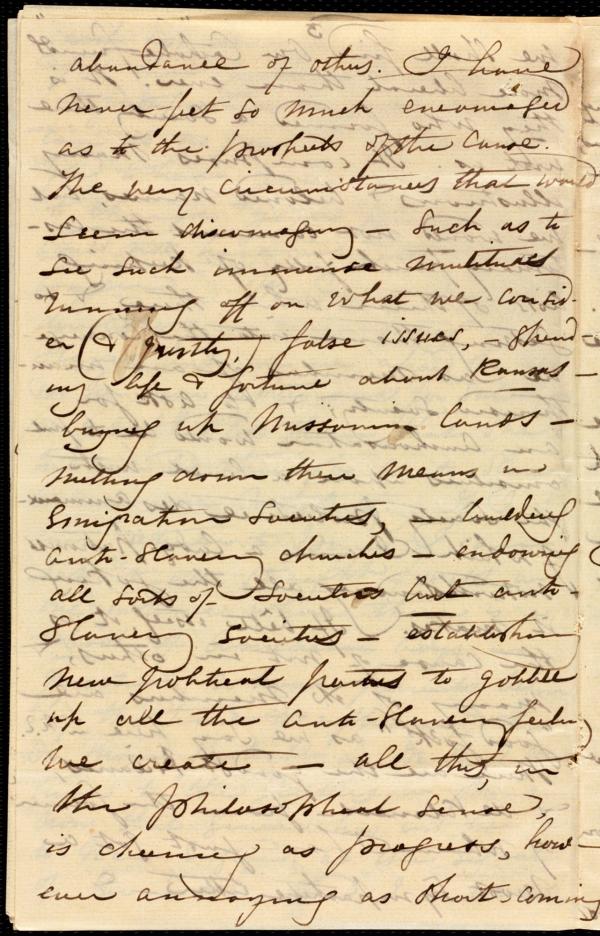 abundance of others. I have
never felt so much encouraged
as to the prospects of the Cause.
The very circumstances that would
seem discouraging – such as to
see such immense multitudes
running off on what we consid-
er (& justly,) false issues, – spend
ing life & fortune about Kansas –
buying up Missouri lands –
melting down their means in
Emigration Societies, – building
anti-Slavery churches – endowing
all sorts of Societies but anti-
Slavery societies – establishing
new political parties to gobble
up all the anti-Slavery feeling
we create – all this, in
the philosophical sense,
is cheering as progress, how-
ever annoying as short-coming